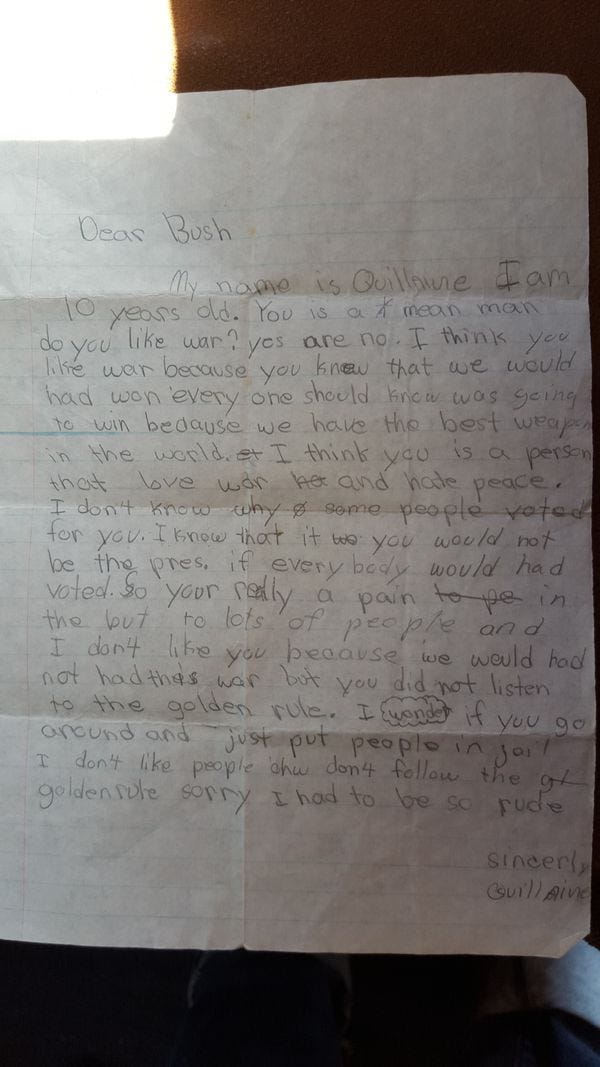 Dear Bush
My name is Quillaine I am
10 years old. You is a mean man
do you like war? yes are no. I think you
like war because you knew that we would
had won every one should know was going
to win because we have the best weapon
in the world. I think you is a person
that love war and hate peace.
I don't know why some people voted
for you. I know that it you would not
be the pres. if every body would had
voted. So your really a pain to pe in
the but to lots of people and
I don't like you because we would had
not had this war but you did not listen
to the golden rule. I wonder if you go
around and just put people in jail
I don't like people ohw don't follow the gl
golden rule sorry I had to be so rude
sincerly
Quillaine